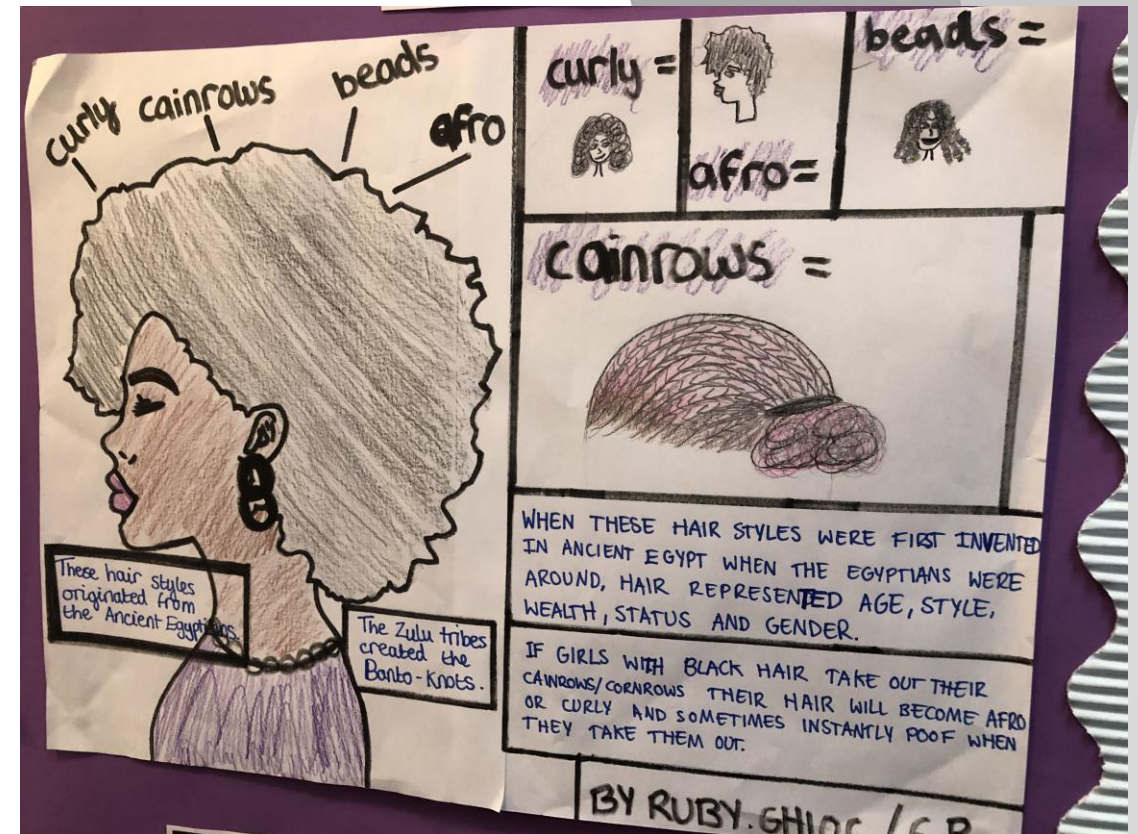 curly
cainrows
beads
afro
These hair styles
originated from
the Ancient Egyptians.
The Zulu tribes
created the
Banto-Knots.
curly =
afro=
beads =
cainrows =
WHEN THESE HAIR STYLES WERE FIRST INVENTED
IN ANCIENT EGYPT WHEN THE EGYPTIANS WERE
AROUND, HAIR REPRESENTED AGE, STYLE,
WEALTH, STATUS AND GENDER.
IF GIRLS WITH BLACK HAIR TAKE OUT THEIR
CAINROWS/CORNROWS THEIR HAIR WILL BECOME AFRO
OR CURLY AND SOMETIMES INSTANTLY POOF WHEN
THEY TAKE THEM OUT.
BY RUBY.